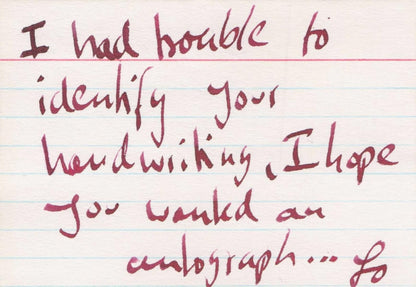 I had trouble to
identify your
handwriting, I hope
you wanted an
autograph...